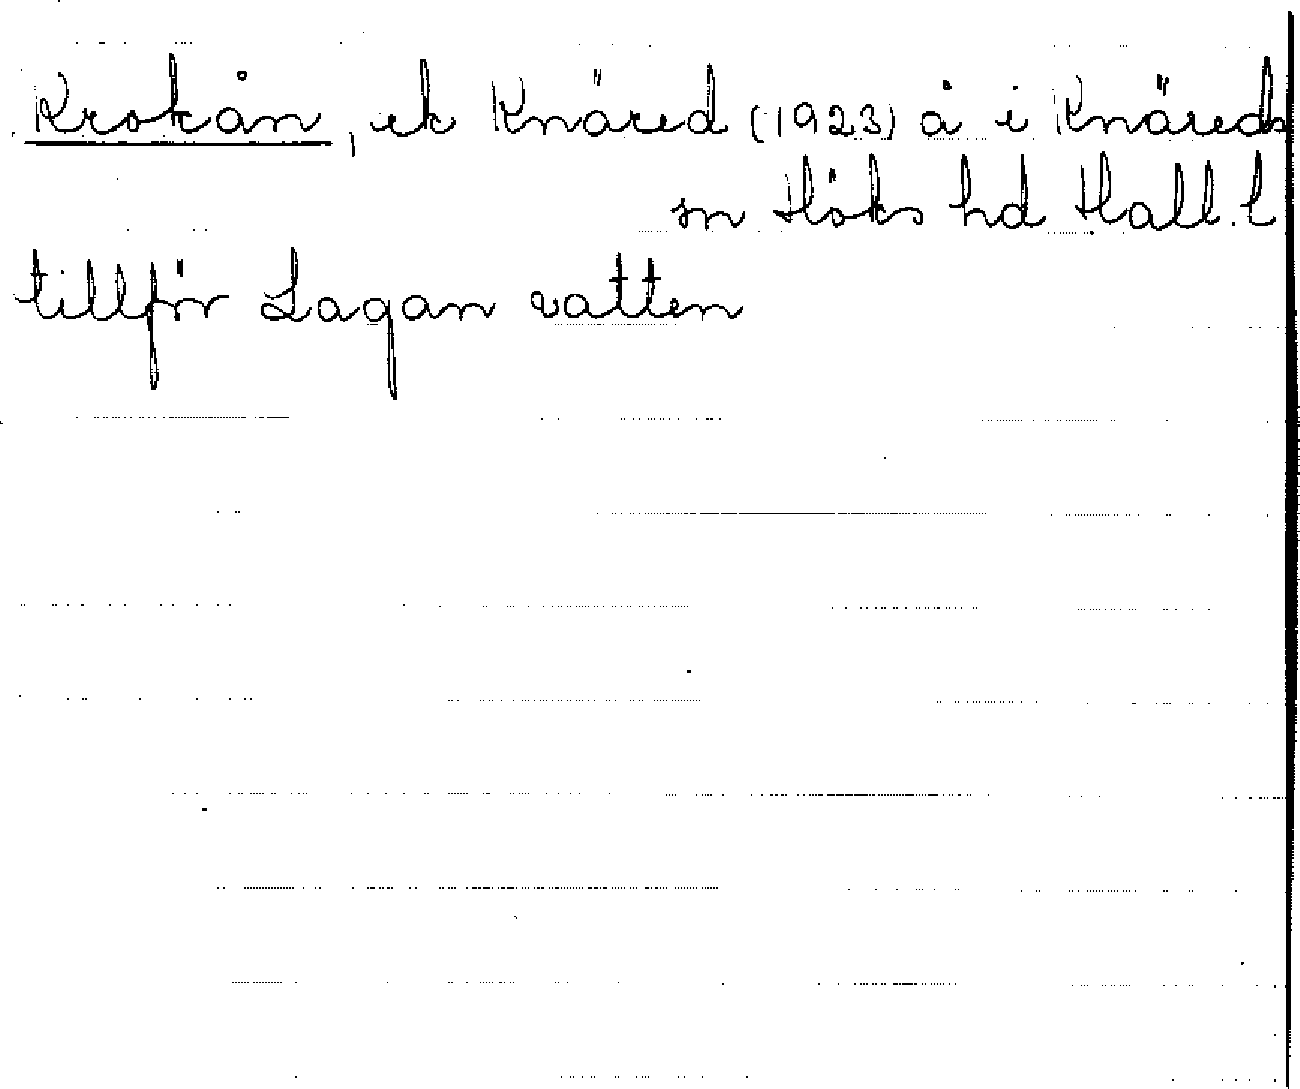 Krokån, ek Knäred (1923) å i Knäreds
sn Höks hd Hall. l
tillför Lagan vatten